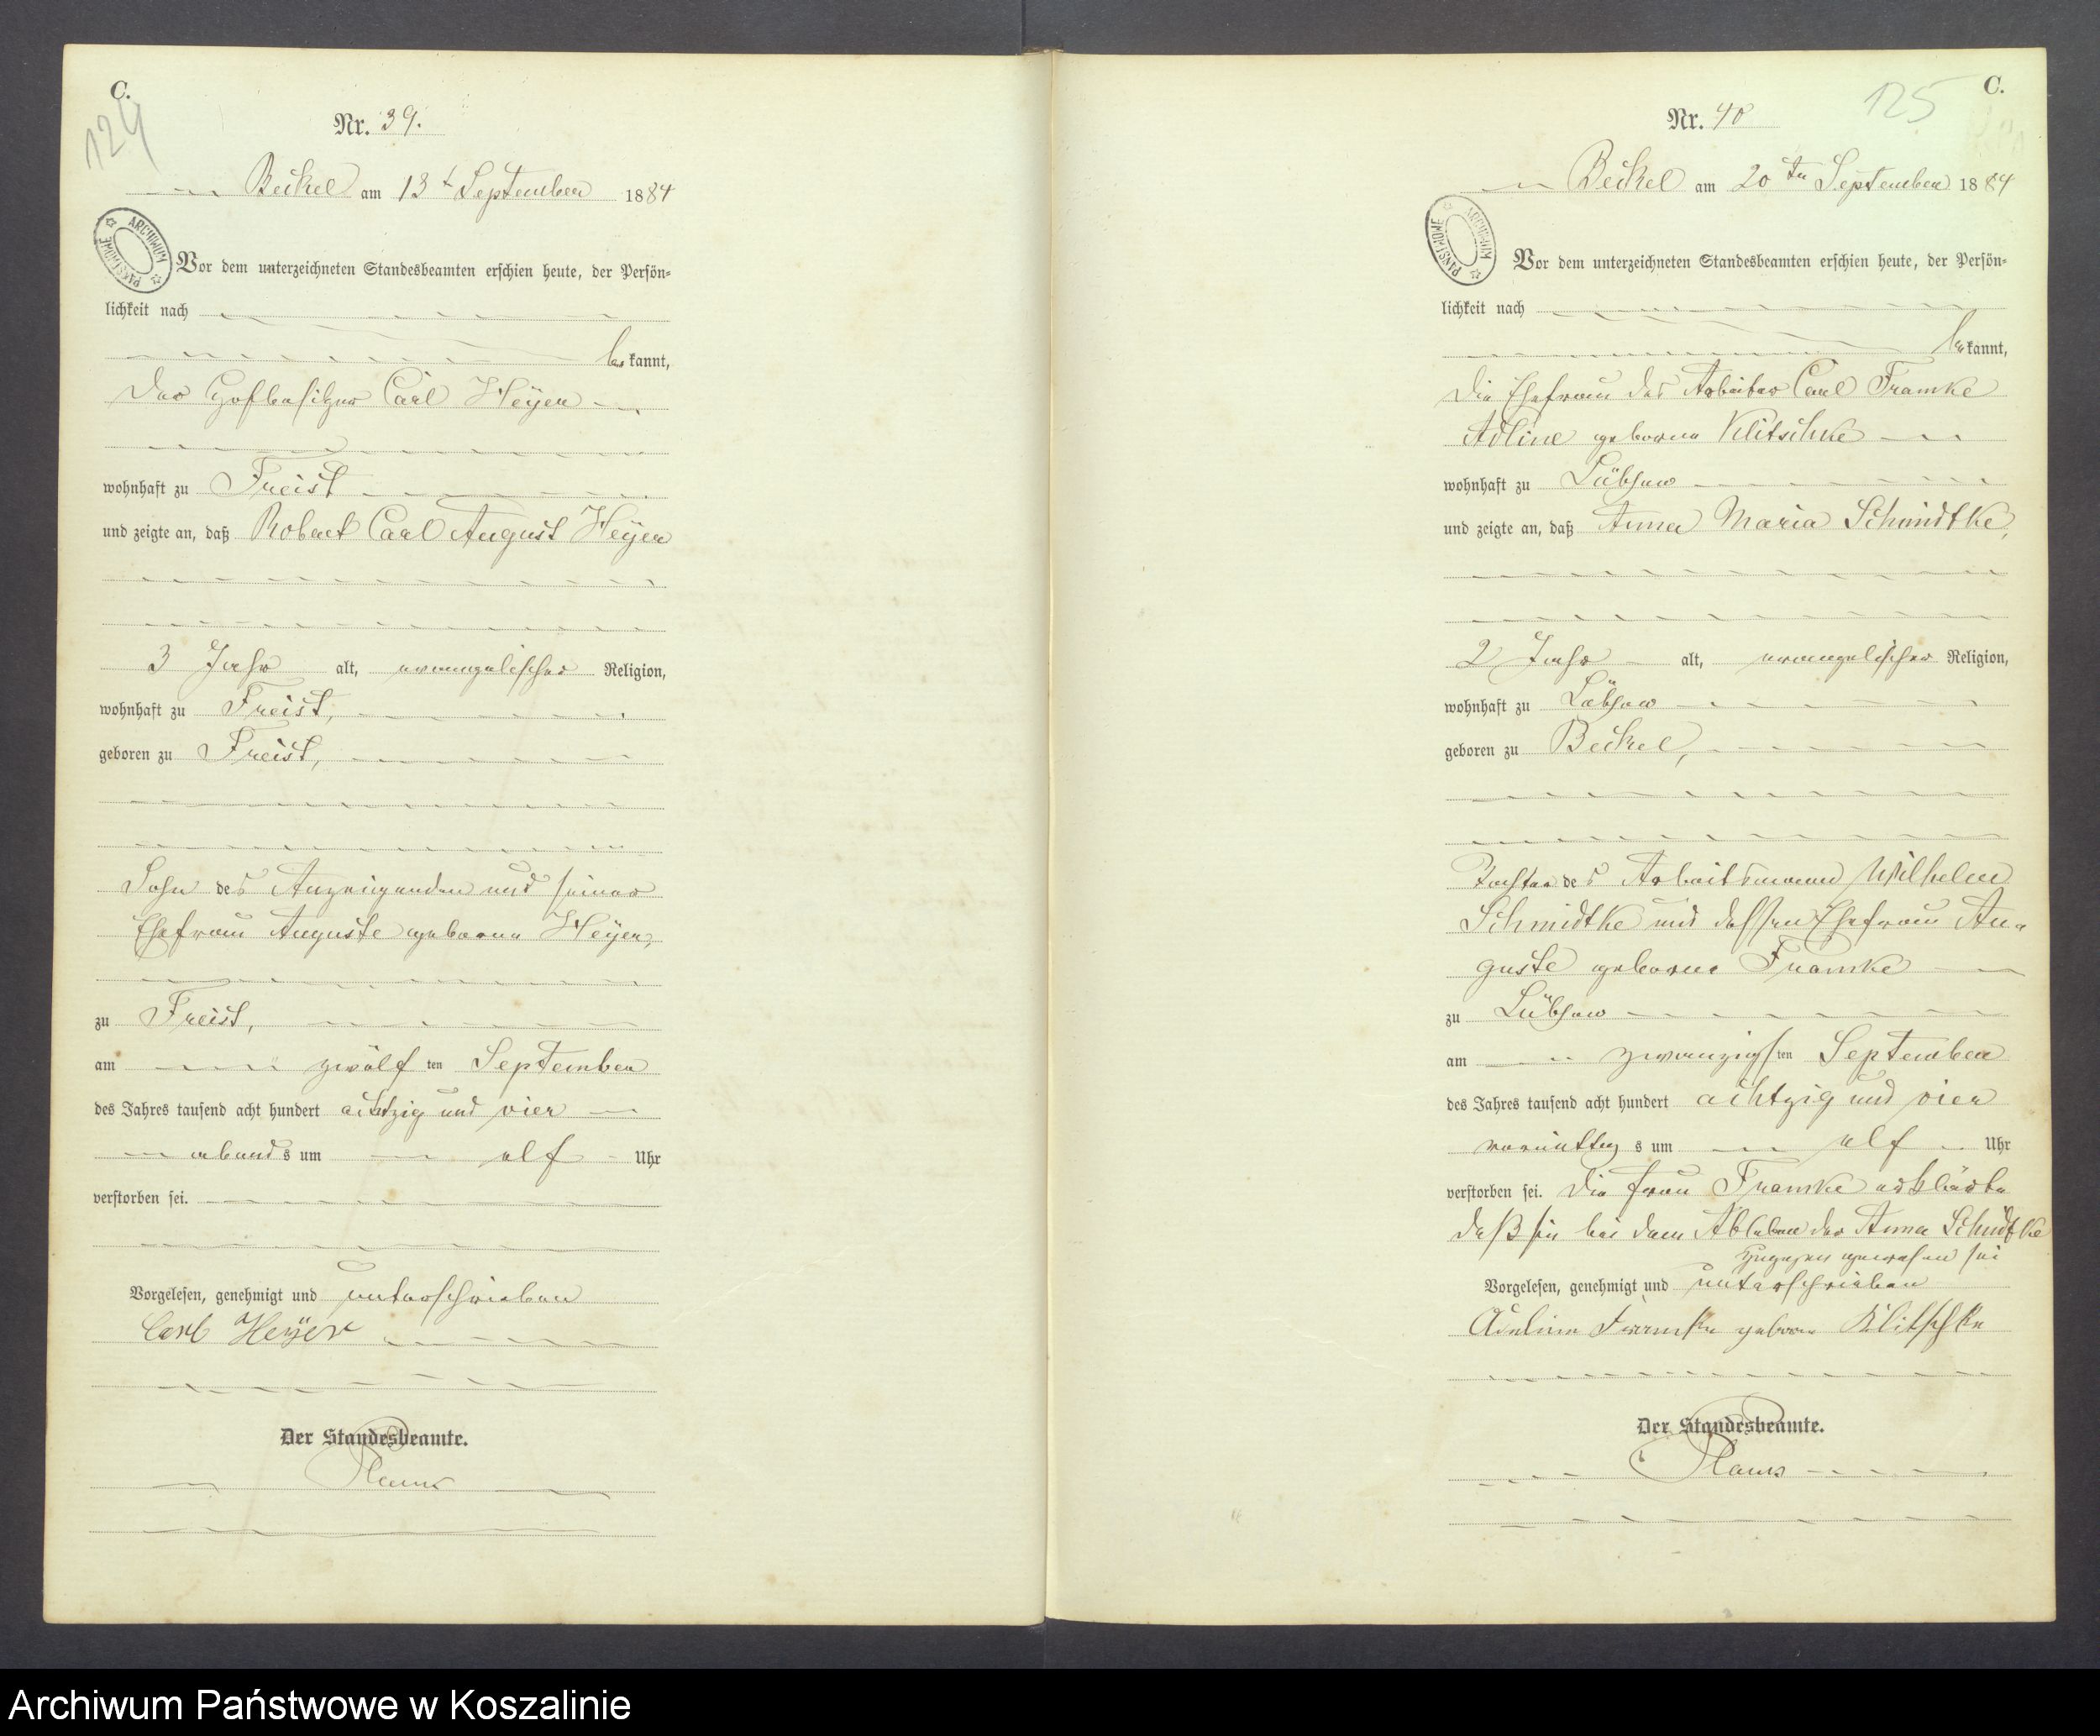 C.
124
Nr. 39.
Beckel am 13t September 1884
ARCHIWUM PAŃSTWOWE
Vor dem unterzeichneten Standesbeamten erschien heute, der Persön-
lichkeit nach
be kannt,
der Hofbesitzer Carl Heyer
wohnhaft zu Freist
und zeigte an, daß Robert Carl August Heyer
3 Jahr alt, evangelischer Religion,
wohnhaft zu Freist,
geboren zu Freist,
Sohn des Anzeigenden und seiner
Ehefrau Auguste geborene Heyer,
zu Freist,
am zwölf ten September
des Jahres tausend acht hundert achtzig und vier
abends um elf Uhr
verstorben sei.
Vorgelesen, genehmigt und unterschrieben
Carl Heyer
Der Standesbeamte.
C.
125
Nr. 40
Beckel am 20ten September 1884
ARCHIWUM PAŃSTWOWE
Vor dem unterzeichneten Standesbeamten erschien heute, der Persön-
lichkeit nach
be kannt,
die Ehefrau des Arbeiter Carl Framke
Adline geborne Klitschke
wohnhaft zu Lübzow
und zeigte an, daß Anna Maria Schmidtke,
2 Jahr alt, evangelischer Religion,
wohnhaft zu Lübzow
geboren zu Beckel,
Tochter des Arbeitsmann Wilhelm
Schmidtke und dessen Ehefrau Au-
guste geborne Framke
zu Lübzow
am zwanzigsten September
des Jahres tausend acht hundert achtzig und vier
vormittags um elf Uhr
verstorben sei. Die Frau Framke erklärte
daß sie bei dem Ableben der Anna Schmidtke
zugegen gewesen sei
Vorgelesen, genehmigt und unterschrieben
Adeline Framke geborne Klitschke
Der Standesbeamte.
Archiwum Państwowe w Koszalinie